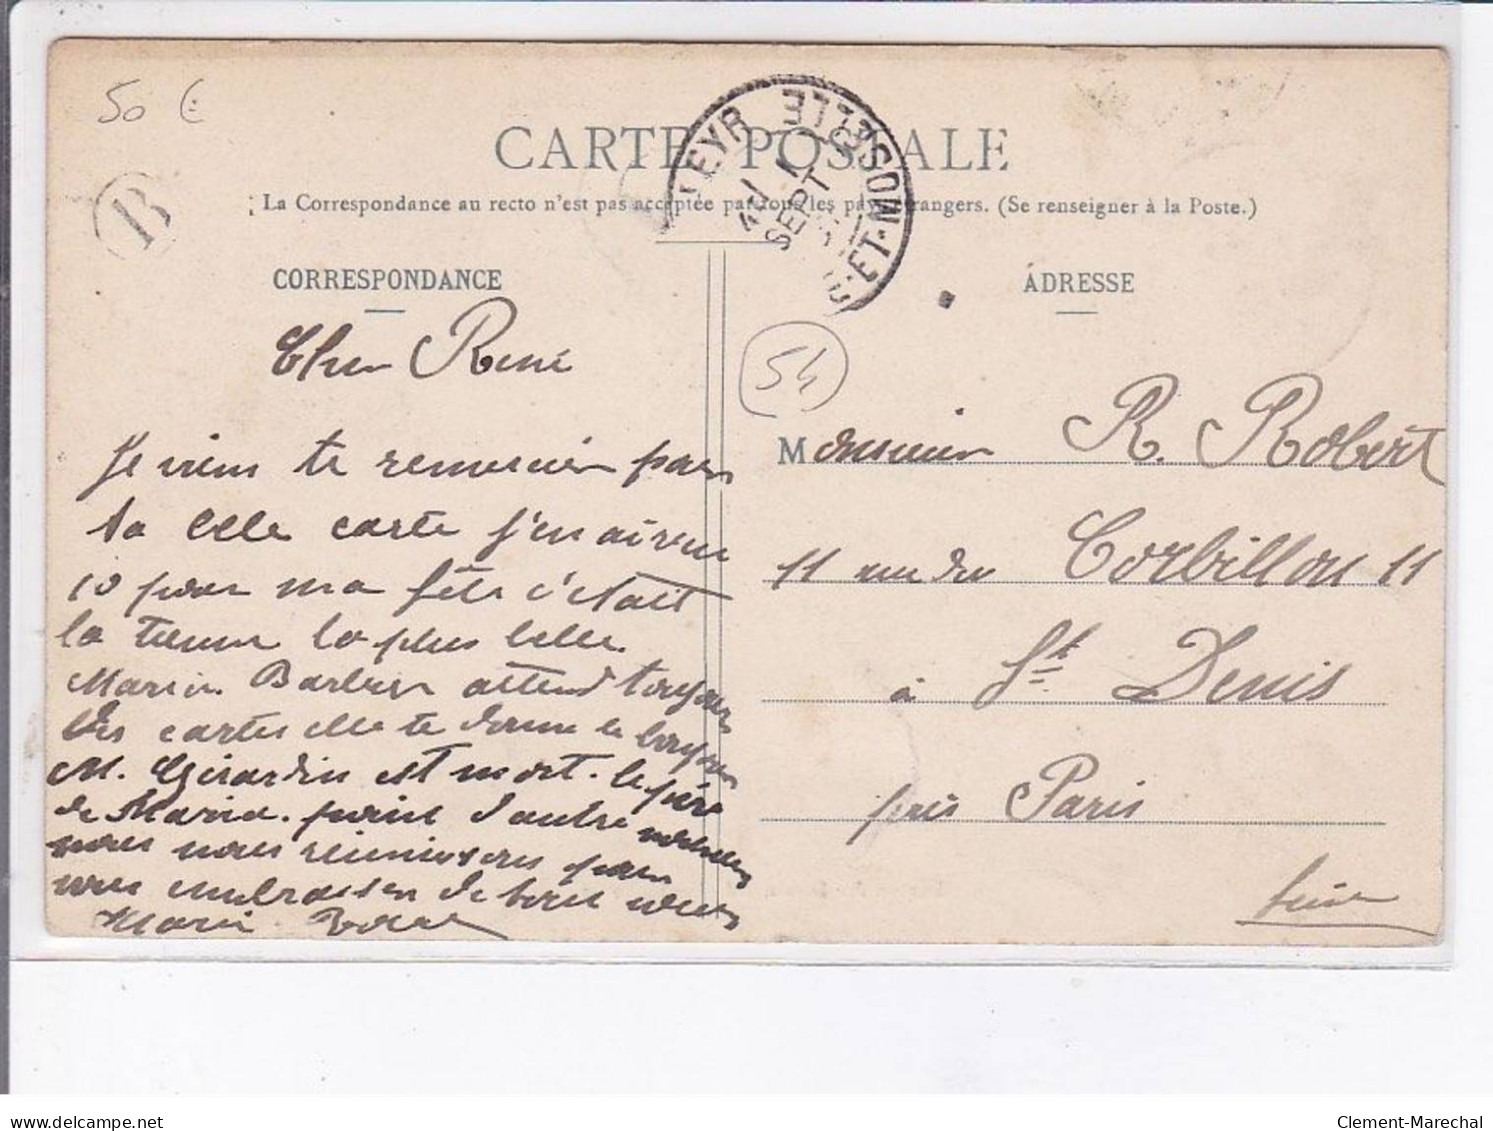 50 €
CARTE POSTALE
La Correspondance au recto n'est pas acceptée par tous les pays étrangers. (Se renseigner à la Poste.)
B
LEYR
SEPT
ET-MOSELLE
CORRESPONDANCE
ADRESSE
54
Cher René
Je viens te remercier par
ta belle carte j'en ai reçu
10 pour ma fête c'était
la tienne la plus belle
Maria Barbier attend toujours
des cartes elle te donne le bonjour
M. Girardin est mort. le père
de Maria. point d'autre nouvelles
nous nous réunissons pour
vous embrasser de tous
Maria
Monsieur R. Robert
11 rue du Corbillon 11
à St Denis
près Paris
Seine
delcampe.net
Clement-Marechal